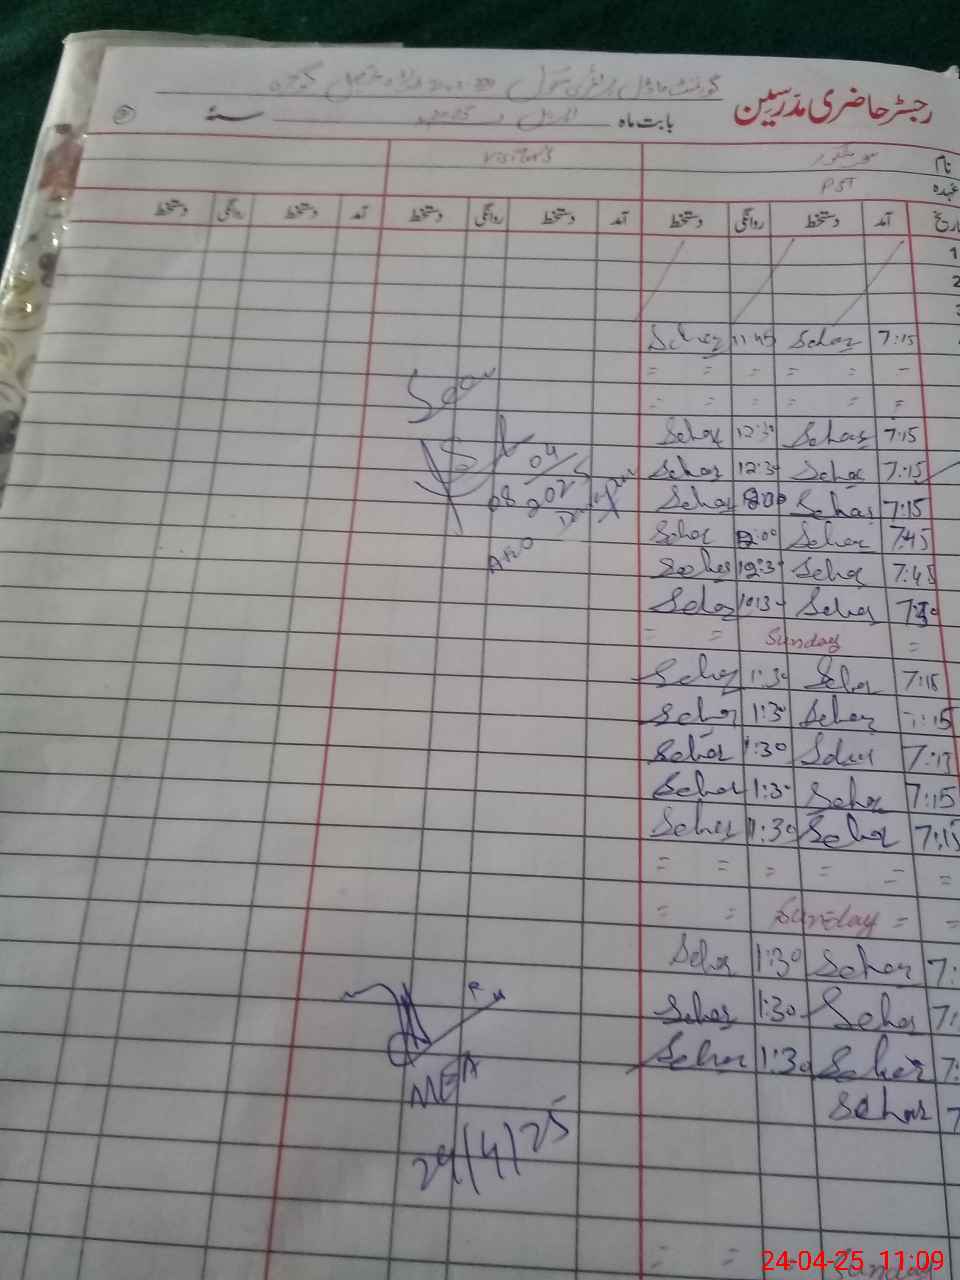 رجسٹر حاضری مدرسین
گورنمنٹ ماڈل پرائمری سکول
بابت ماہ اپریل 2025 سنہ
نام visitor's
عہدہ PST
تاریخ آمد دستخط روانگی دستخط آمد دستخط روانگی دستخط آمد دستخط روانگی دستخط
1
2
3
7:15 Sehar 11:45 Sehar
= = = = =
= = = = =
7:15 Sehar 12:30 Sehar
7:15 Sehar 12:30 Sehar
04
08 2025
7:15 Sehar Sehar
7:45 Sehar Sehar
AEO
7:45 Sehar 12:30 Sehar
Sehar Sehar
= Sunday = =
7:15 Sehar 1:30 Sehar
7:15 Sehar 1:30 Sehar
7:15 Sehar 1:30 Sehar
7:15 Sehar 1:30 Sehar
7:15 Sehar 1:30 Sehar
= = = = = =
= = Sunday = =
7: Sehar 1:30 Sehar
7: Sehar 1:30 Sehar
7: Sehar 1:30 Sehar
7 Sehar
MEA
24/4/25
Sunday = =
24-04-25 11:09